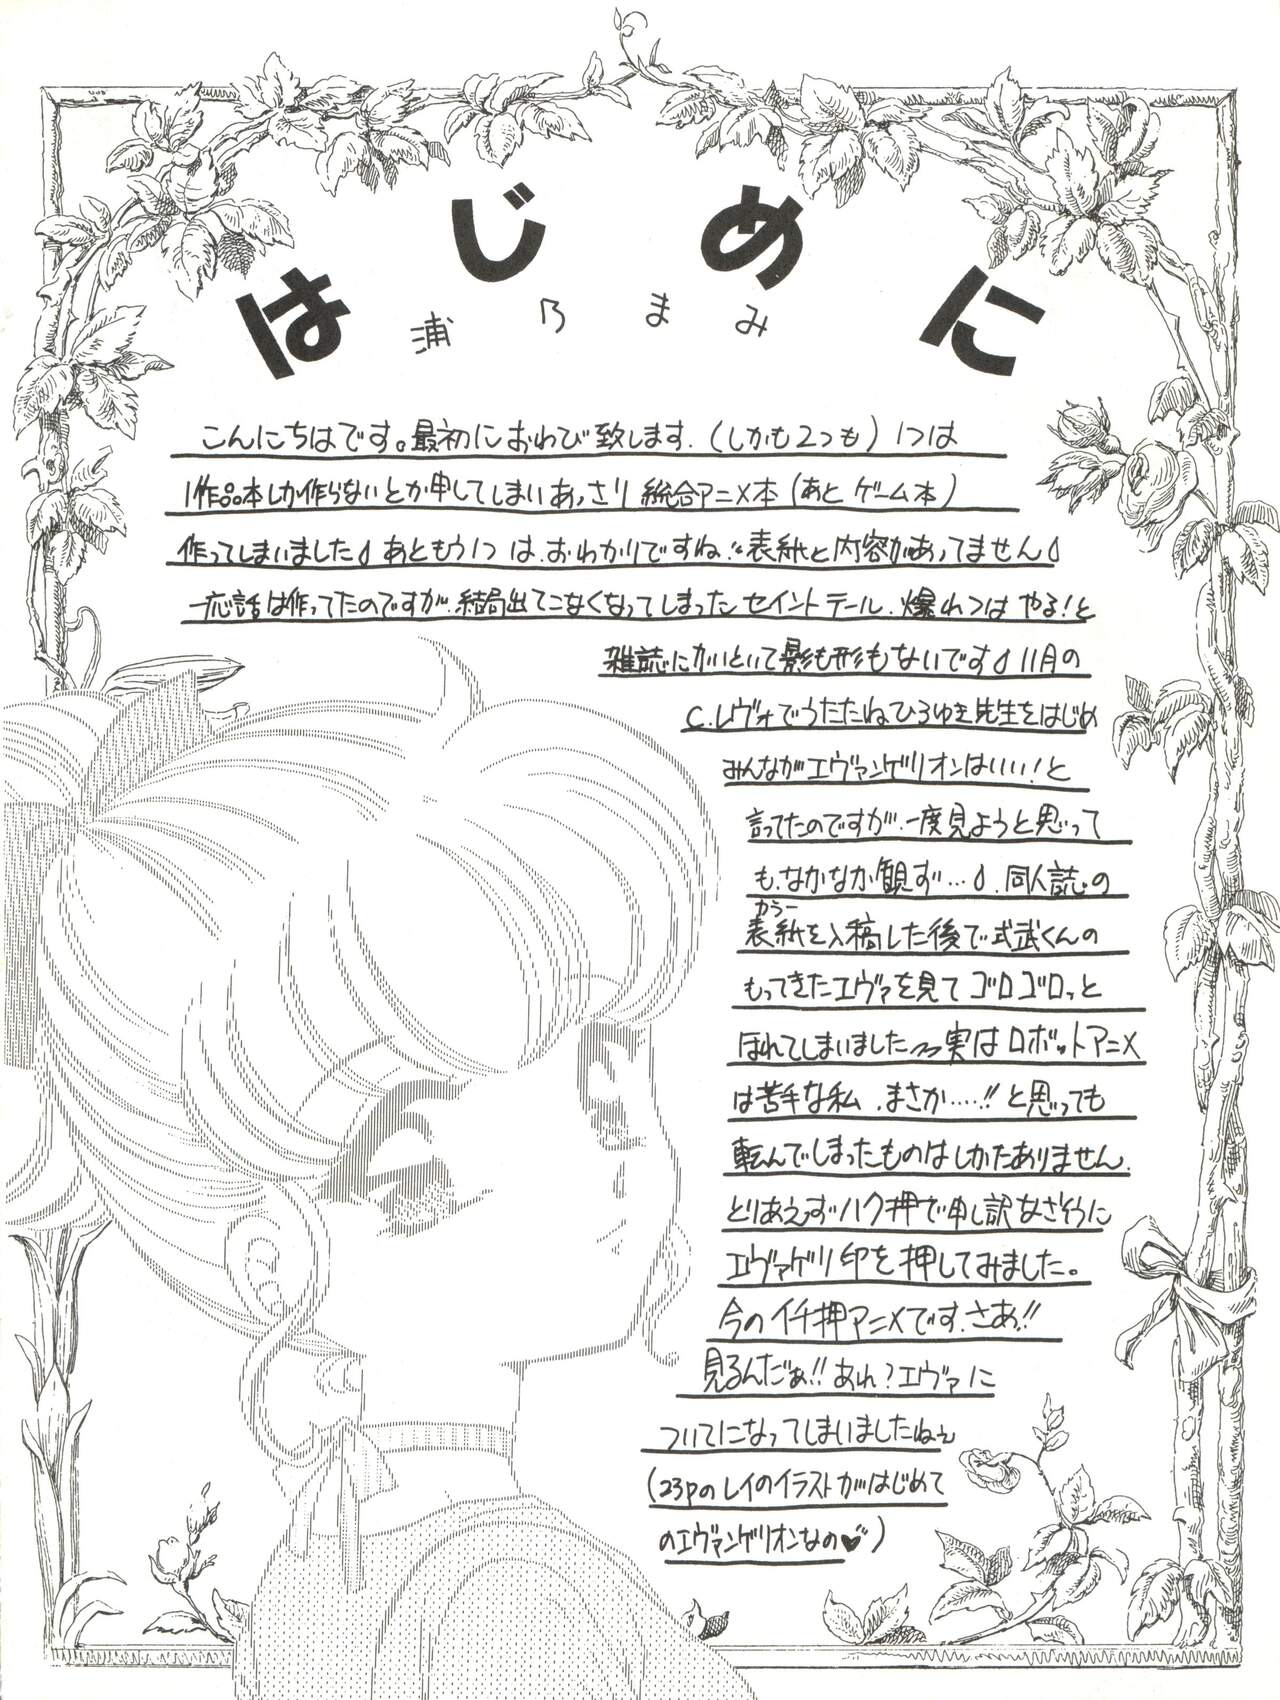 はじめに
浦乃まみ
こんにちはです。最初におわび致します.(しかも2つも)1つは
1作品本しか作らないとか申してしまいあっさり総合アニメ本(あとゲーム本)
作ってしまいました あともう1つは.おわかりですね!!表紙と内容があってません
一応話は作ってたのですが.結局出てこなくなってしまったセイントテール.爆れつはやる!と
雑誌にかいといて影も形もないです 11月の
C.レヴォでうたたねひろゆき先生をはじめ
みんながエヴァンゲリオンはいい!と
言ってたのですが.一度見ようと思って
も.なかなか観ず… .同人誌の
カラー
表紙を入稿した後で式武くんの
もってきたエヴァを見てゴロゴロっと
ほれてしまいました〜実はロボットアニメ
は苦手な私.まさか……!!と思っても
転んでしまったものはしかたありません.
とりあえずハク押で申し訳なさそうに
エヴァゲリ印を押してみました。
今のイチ押アニメです.さあ!!
見るんだぁ!!あれ?エヴァに
ついてになってしまいましたねぇ
(23Pのレイのイラストがはじめて
のエヴァンゲリオンなの♥)